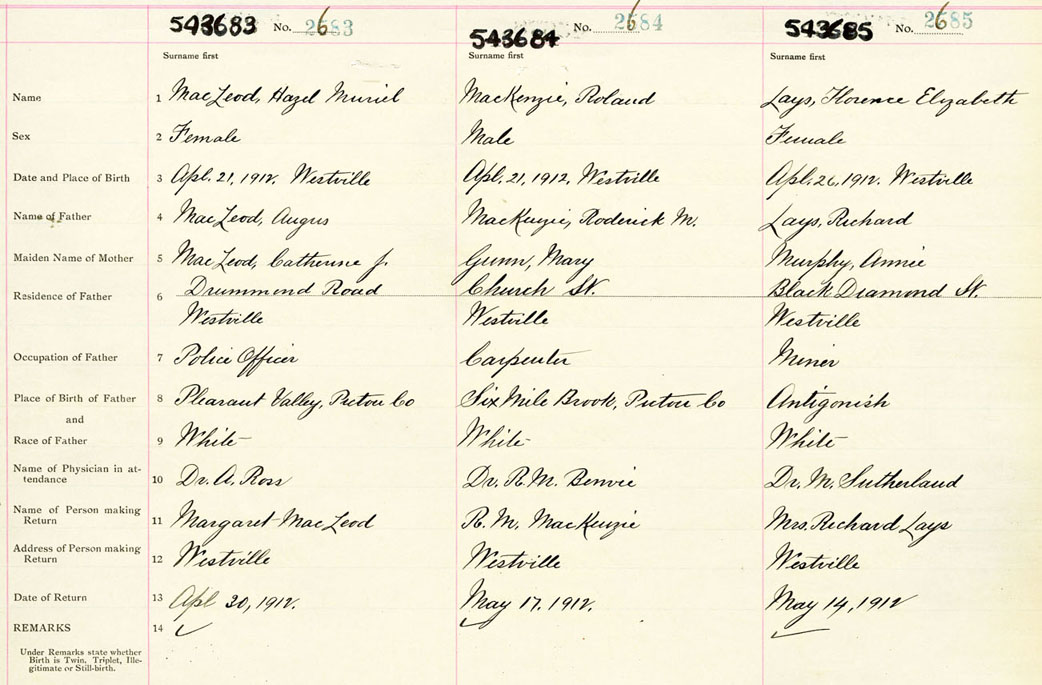 543683 No. 2683 543684 No. 2684 543685 No. 2685
Surname first Surname first Surname first
Name 1 MacLeod, Hazel Muriel MacKenzie, Roland Lays, Florence Elizabeth
Sex 2 Female Male Female
Date and Place of Birth 3 Apl. 21, 1912. Westville Apl. 21, 1912. Westville Apl. 26, 1912. Westville
Name of Father 4 MacLeod, Angus MacKenzie, Roderick M. Lays, Richard
Maiden Name of Mother 5 MacLeod, Catherine J. Gunn, Mary Murphy, Annie
Residence of Father 6 Drummond Road Church St. Black Diamond St.
Westville Westville Westville
Occupation of Father 7 Police Officer Carpenter Miner
Place of Birth of Father 8 Pleasant Valley, Pictou Co Six Mile Brook, Pictou Co Antigonish
and
Race of Father 9 White White White
Name of Physician in at-
tendance 10 Dr. A. Ross Dr. R. M. Benvie Dr. M. Sutherland
Name of Person making
Return 11 Margaret MacLeod R. M. MacKenzie Mrs. Richard Lays
Address of Person making
Return 12 Westville Westville Westville
Date of Return 13 Apl 30, 1912. May 17, 1912. May 14, 1912
REMARKS 14
Under Remarks state whether
Birth is Twin, Triplet, Ille-
gitimate or Still-birth.